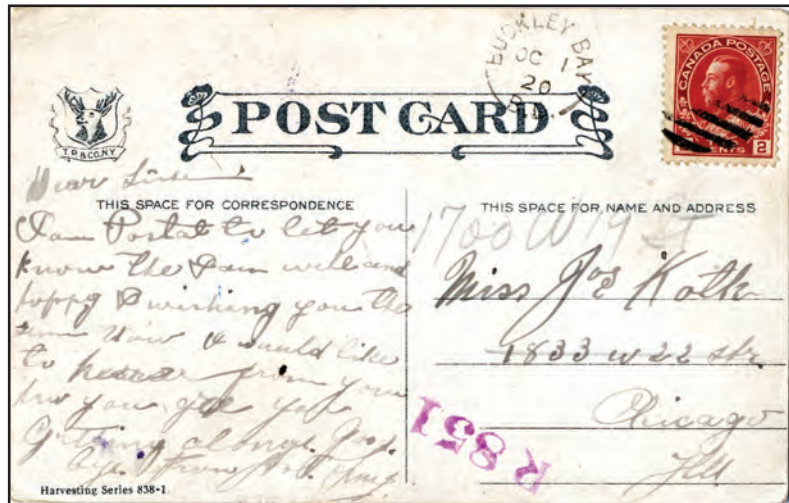 BUCKLEY BAY
OC 1
20
B.C.
CANADA POSTAGE
2 CENTS 2
POST CARD
T.P. & CO. N.Y.
Dear
THIS SPACE FOR CORRESPONDENCE
Postal to let you
know the I am well and
happy & wishing you the
same Now I would like
to from you
how you
Getting alonge Good
bye From
Harvesting Series 838-1
THIS SPACE FOR NAME AND ADDRESS
1700 W 19 St
Miss Jos Kotk
1833 w 22 str
Chicago
Ill
R 851